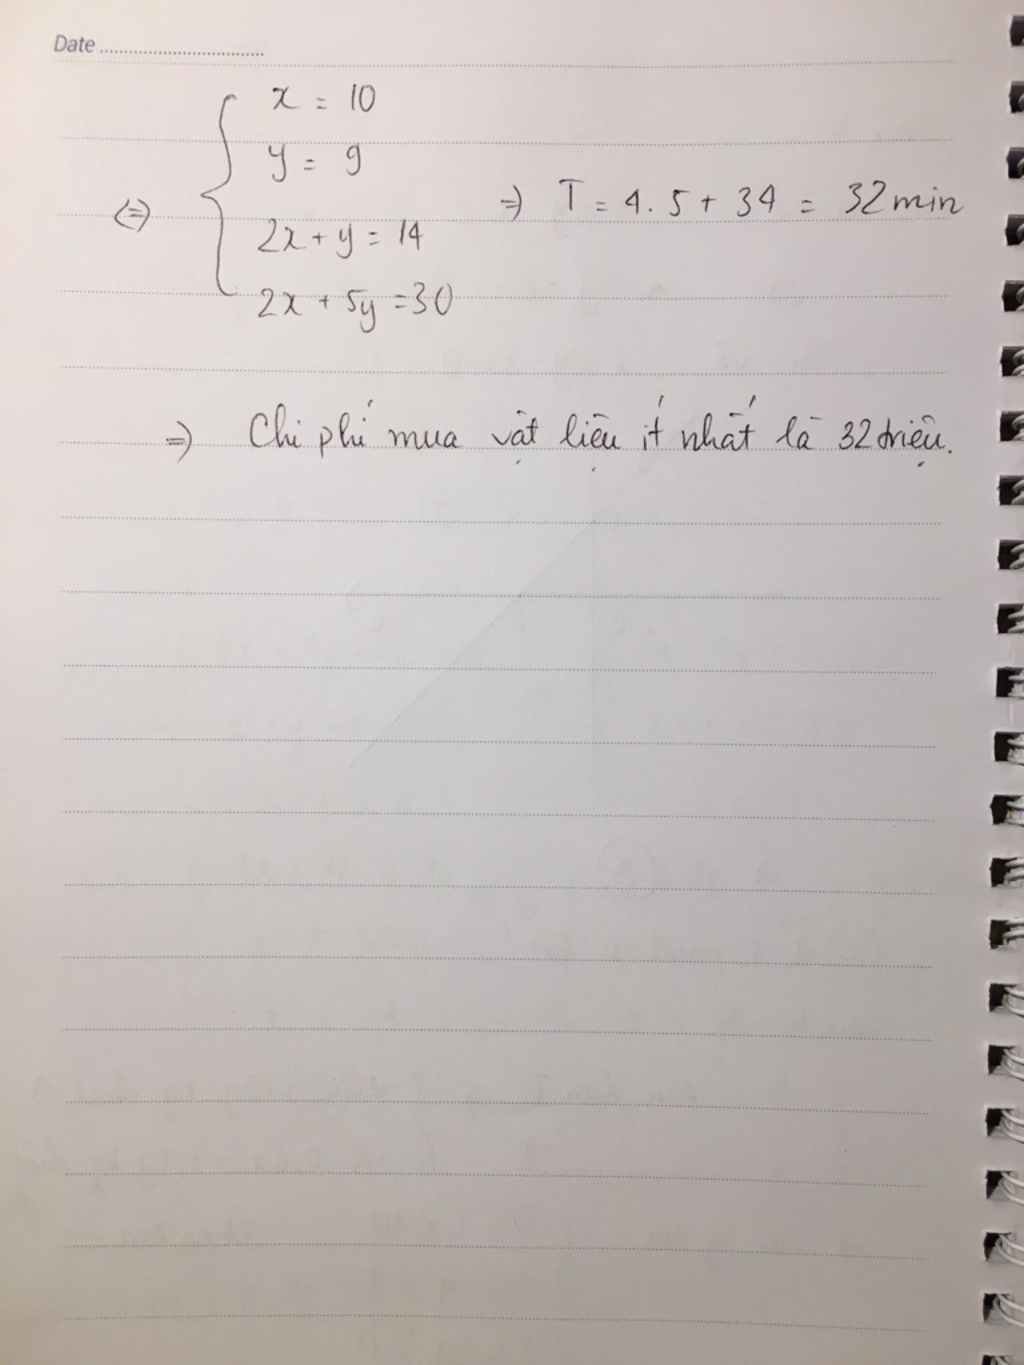 Date
x = 10
y = 9
⇔ 2x + y = 14 ⇒ T = 4.5 + 34 = 32 min
2x + 5y = 30
⇒ Chi phí mua vật liệu ít nhất là 32 triệu.